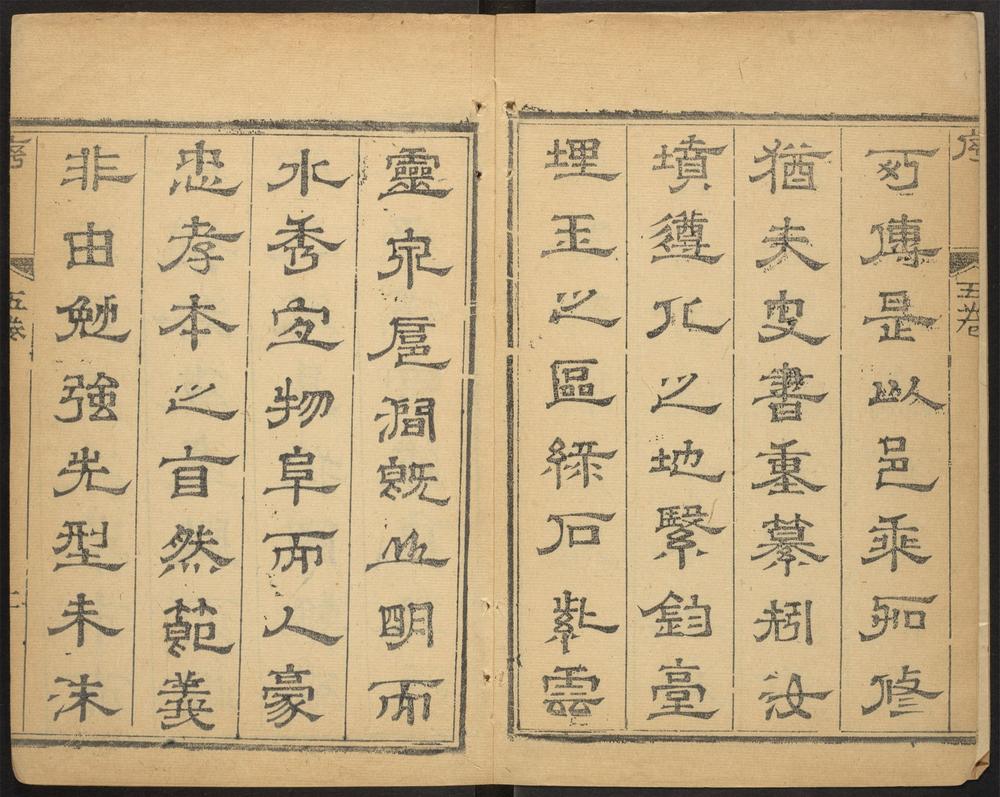 序 五卷
傳是以邑乘修
猶夫史書重纂矧汝
墳遵化之地緊鈞臺
埋玉之區綠石紫雲
靈泉扈澗既山明而
水秀宜物阜而人豪
忠孝本之自然節義
非由勉強先型未沫
序 五卷